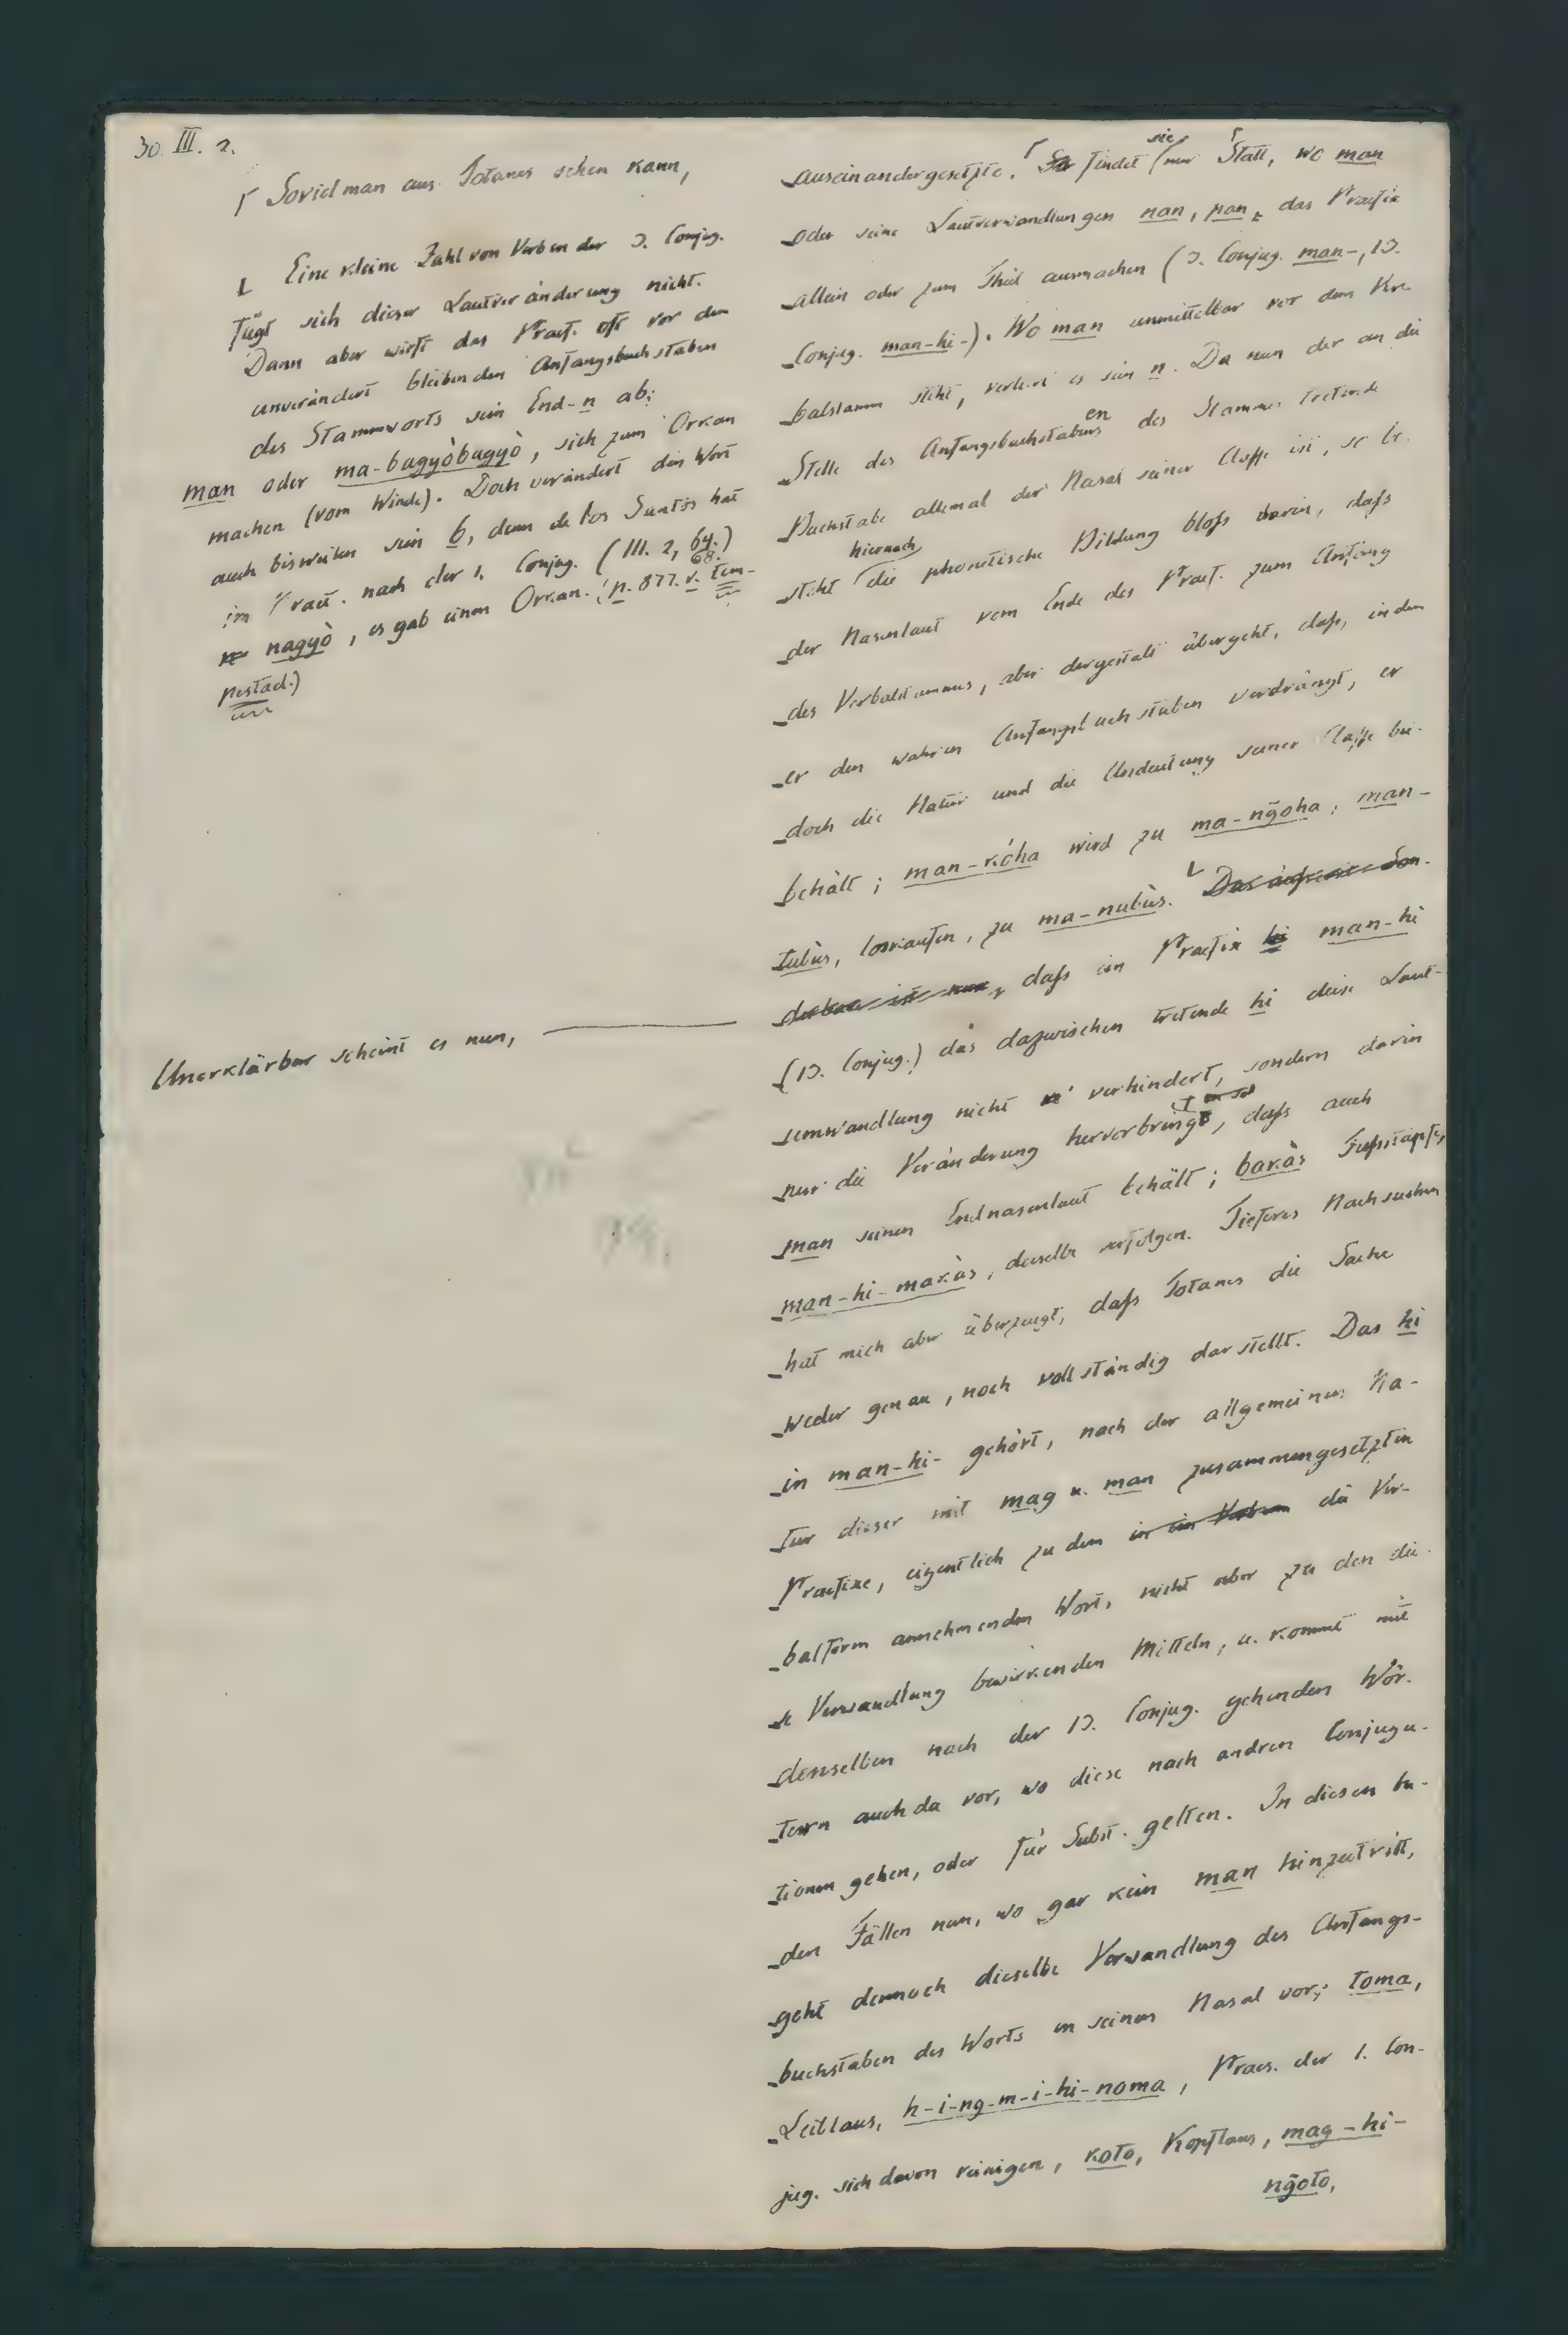 30. III. 2.
⌈ Soviel man aus Totanes sehen kann,
⌊ Eine kleine Zahl von Verben der 2. Conjug.
fügt sich dieser Lautveränderung nicht.
Dann aber wirft das Praef. oft vor dem
unverändert bleibenden Anfangsbuchstaben
des Stammworts sein End-n ab;
man oder ma-bagyòbagyò, sich zum Orkan
machen (vom Winde). Doch verändert dies Wort
auch bisweilen sein b, denn de los Santos hat
im Praet. nach der 1. Conjug. (III. 2, 64. 68.)
nagyò, es gab einen Orkan. (p. 877. v. tem-
pestad.)
Unerklärbar scheint es nun,
auseinandergesetzte. ⌈ So findet sie nur Statt, wo man
oder seine Lautverwandlungen nan, pan, das Praefix
allein oder zum Theil ausmachen (2. Conjug. man-, 12.
Conjug. man-hi-). Wo man unmittelbar vor dem Ver-
balstamm steht, verliert es sein n. Da nun der an die
Stelle des Anfangsbuchstaben des Stammes tretende
Buchstabe allemal der Nasal seiner Classe ist, so be-
steht hiernach die phonetische Bildung bloß darin, daß
der Nasenlaut vom Ende des Praef. zum Anfang
des Verbalstammes, aber dergestalt übergeht, daß, indem
er den wahren Anfangsbuchstaben verdrängt, er
doch die Natur und die Andeutung seiner Classe bei-
behält; man-kóha wird zu ma-ngoha; man-
tubùs, loskaufen, zu ma-nubùs. ⌊ Das
daß im Praefix hi man-hi
(12. Conjug.) das dazwischen tretende hi diese Laut-
umwandlung nicht verhindert, sondern darin
nur die Veränderung hervorbringt, daß auch
man seinen Endnasenlaut behält; bakàs Fußstapfe,
man-hi-makàs, dieselbe verfolgen. Tieferes Nachsuchen
hat mich aber überzeugt, daß Totanes die Sache
weder genau, noch vollständig darstellt. Das hi
in man-hi- gehört, nach der allgemeinen Na-
tur dieser mit mag u. man zusammengesetzten
Praefixe, eigentlich zu dem in ein Verbum die Ver-
balform annehmenden Wort, nicht aber zu den die-
se Verwandlung bewirkenden Mitteln, u. kommt mit
denselben nach der 12. Conjug. gehenden Wör-
tern auch da vor, wo diese nach andren Conjuga-
tionen gehen, oder für Subst. gelten. In diesen bei-
den Fällen nun, wo gar kein man hinzutritt,
geht dennoch dieselbe Verwandlung des Anfangs-
buchstaben des Worts in seinen Nasal vor; toma,
Leiblaus, h-i-ng-m-i-hi-noma, Praes. der 1. Con-
jug. sich davon reinigen, koto, Kopflaus, mag-hi-
ngoto,